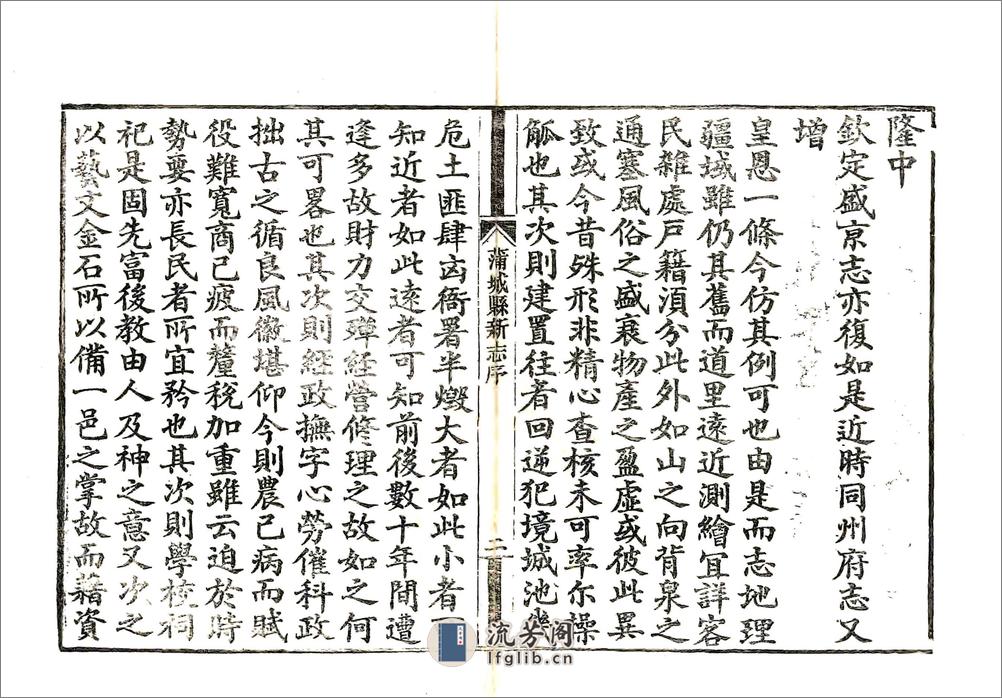 隆中
欽定盛京志亦復如是近時同州府志又
增
皇恩一條今仿其例可也由是而志地理
疆域雖仍其舊而道里遠近測繪宜詳客
民雜處戸籍須分此外如山之向背泉之
通塞風俗之盛衰物產之盈虛或彼此異
致或今昔殊形非精心查核未可率尔操
觚也其次則建置往者回逆犯境城池幾
蒲城縣新志序
危土匪肆凶衙署半燬大者如此小者可
知近者如此遠者可知前後數十年間遭
逢多故財力交殫經營修理之故如之何
其可畧也其次則經政撫字心勞催科政
拙古之循良風徽堪仰今則農已病而賦
役難寬商已疲而釐稅加重雖云迫於時
勢要亦長民者所宜矜也其次則學校祠
祀是固先富後教由人及神之意又次之
以藝文金石所以備一邑之掌故而藉資
流芳阁
lfglib.cn